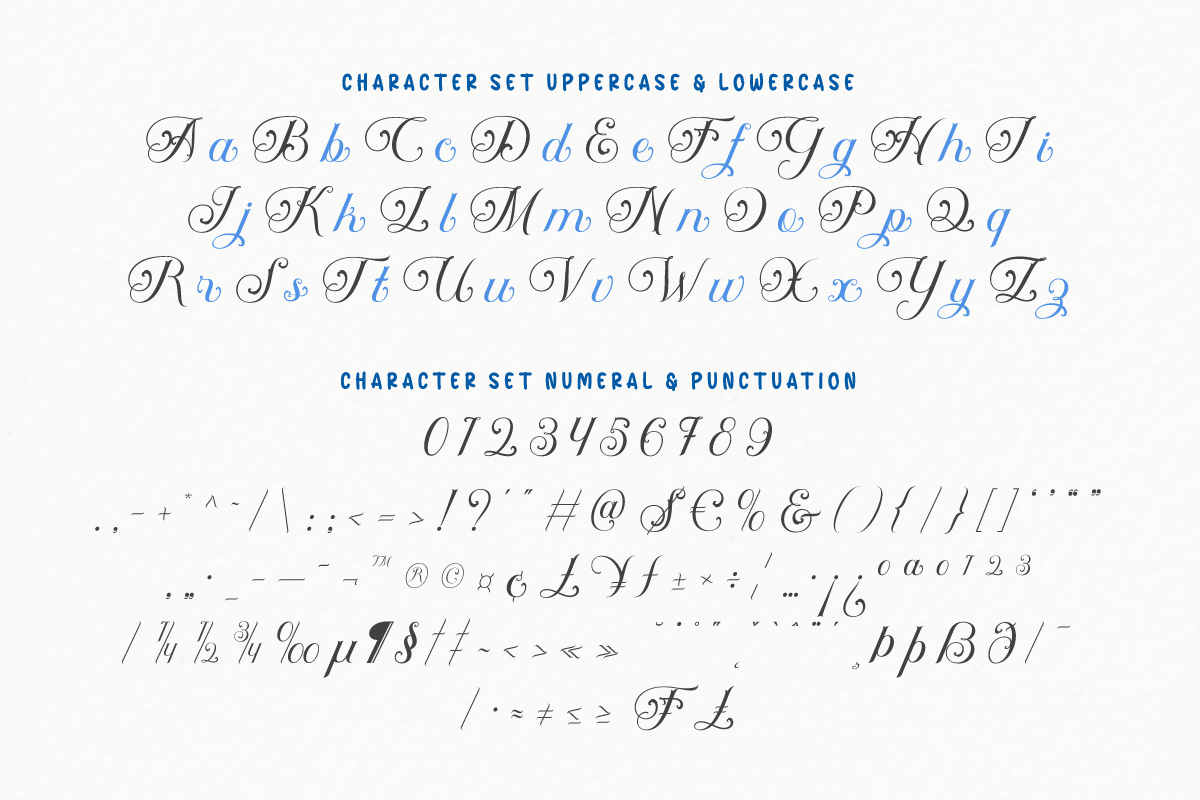 CHARACTER SET UPPERCASE & LOWERCASE
A a B b C c D d E e F f G g H h I i
J j K k L l M m N n O o P p Q q
R r S s T t U u V v W w X x Y y Z z
CHARACTER SET NUMERAL & PUNCTUATION
0 1 2 3 4 5 6 7 8 9
. , - + * ^ ~ / \ : ; < = > ! ? ' " # @ $ € % & ( ) { | } [ ] ‘ ’ “ ”
‚ „ · _ – — ¯ ¬ ™ ® © ¤ ¢ £ ¥ ƒ ± × ÷ ¦ … · ¡ ¿ º ª ⁰ ¹ ² ³
⁄ ¼ ½ ¾ ‰ µ ¶ § † ‡ ~ ‹ › « » þ ß ∂ / ¯
/ · ≈ ≠ ≤ ≥ ₣ ₤